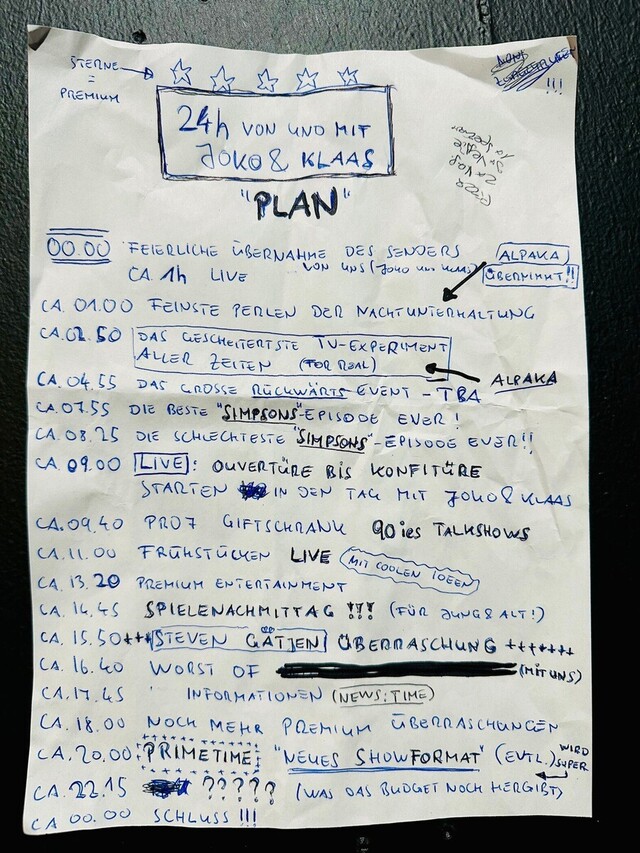 STERNE
=
PREMIUM
24h VON UND MIT
JOKO & KLAAS
"PLAN"
00.00 FEIERLICHE ÜBERNAHME DES SENDERS
VON UNS (JOKO UND KLAAS)
CA. 1h LIVE
ALPAKA
ÜBERNIMMT!!
CA. 01.00 FEINSTE PERLEN DER NACHTUNTERHALTUNG
CA. 02.50 DAS GESCHEITERTSTE TV-EXPERIMENT
ALLER ZEITEN (FOR REAL)
ALPAKA
CA. 04.55 DAS GROSSE RÜCKWÄRTS-EVENT - TBA
CA. 07.55 DIE BESTE "SIMPSONS"-EPISODE EVER!
CA. 08.25 DIE SCHLECHTESTE "SIMPSONS"-EPISODE EVER!!
CA. 09.00 LIVE: OUVERTÜRE BIS KONFITÜRE
STARTEN IN DEN TAG MIT JOKO & KLAAS
CA. 09.40 PRO7 GIFTSCHRANK 90ies TALKSHOWS
CA. 11.00 FRÜHSTÜCKEN LIVE (MIT COOLEN IDEEN)
CA. 13.20 PREMIUM ENTERTAINMENT
CA. 14.45 SPIELENACHMITTAG !!! (FÜR JUNG & ALT!)
CA. 15.50 +++ STEVEN GÄTJEN ÜBERRASCHUNG +++++++
CA. 16.40 WORST OF (MIT UNS)
CA. 17.45 INFORMATIONEN (NEWS:TIME)
CA. 18.00 NOCH MEHR PREMIUM ÜBERRASCHUNGEN
CA. 20.00 PRIMETIME "NEUES SHOWFORMAT" (EVTL.) WIRD SUPER
CA. 22.15 ????? (WAS DAS BUDGET NOCH HERGIBT)
CA 00.00 SCHLUSS!!!